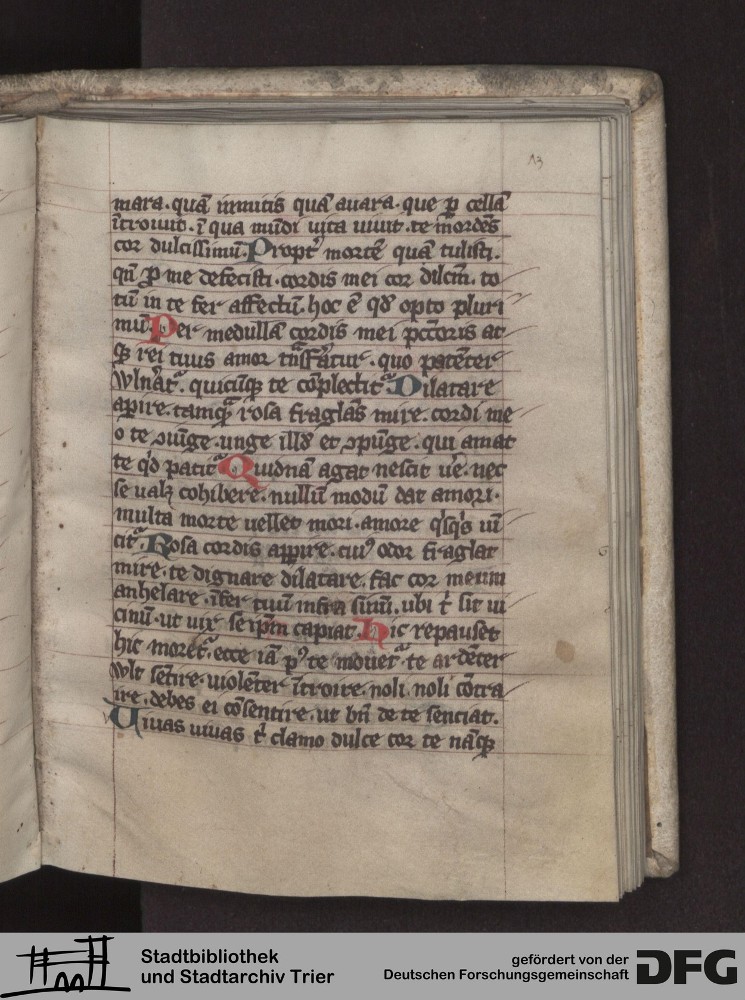 13
mara. quā inmitis quā auara. que ꝑ cellā
ītrouit. ī qua mūdi uita uiuit. te mordēs
cor dulcissimū. Propť mortē quā tulisti.
qn̄ ꝓ me defecisti. cordis mei cor dilcm̄. to
tū in te fer affectū. hoc ē qď opto pluri
mū. Per medullā cordis mei pctōris at
qꝫ rei tuus amor tͣnsfāt᷑. quo patēter
uulnāt᷑. quicūqꝫ te cōplectit᷑. Dilatare
apire. tamqͣ rosa fraglās mire. cordi me
o te ꝯiūge. unge illď et ꝯpūge. qui amat
te qͥd patit᷑. Quidnā agat nescit ue. nec
se ualꝫ cohibere. nullū modū dat amori.
multa morte uellet mori. amore qͥsqͥs uī
cit᷑. Rosa cordis appire. cuiꝰ odor fraglat
mire. te dignare dilatare. fac cor meum
anhelare. īfer tuū infra sinū. ubi ť sit ui
cinū. ut uix se ip̄m capiat. Hic repauset
hic moret᷑. ecce iā pꝰ te mouet᷑. te ardēter
uult sētire. uiolēter ītroire. noli. noli cōtra
ire. debes ei cōsentire. ut bn̄ de te senciat.
Viuas uiuas ť clamo dulce cor te nāqꝫ
Stadtbibliothek
und Stadtarchiv Trier
gefördert von der
Deutschen Forschungsgemeinschaft
DFG